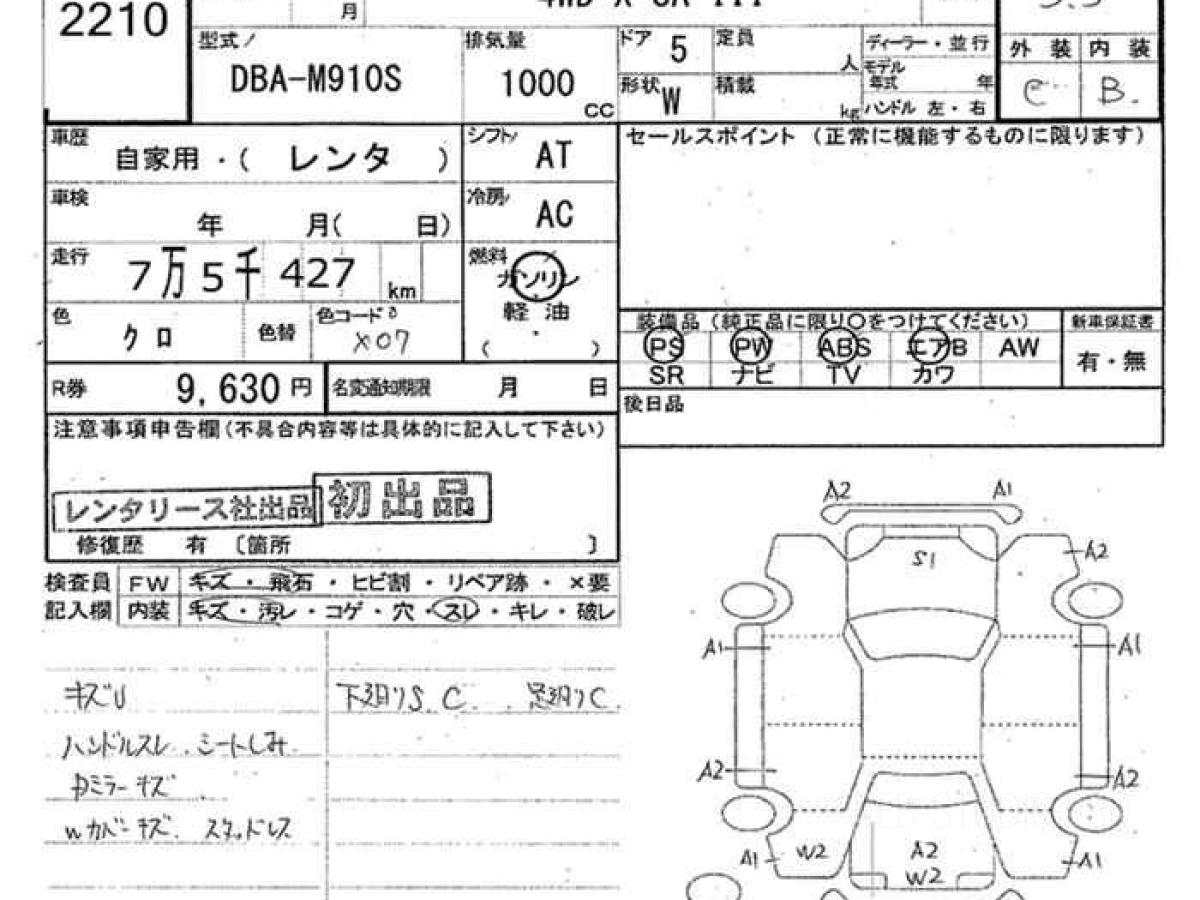 2210
月
4WD X SA III
3.5
型式
DBA-M910S
排気量
1000
CC
ドア 5
定員
人
形状 W
積載
kg
ディーラー・並行
モデル年式 年
ハンドル 左・右
外装 内装
C B.
車歴
自家用・( レンタ )
シフト
AT
セールスポイント (正常に機能するものに限ります)
車検
年 月( 日)
冷房
AC
走行
7万5千427 km
燃料
ガソリン
軽油
( )
色
クロ
色替
色コード
X07
装備品(純正品に限り○をつけてください)
新車保証書
PS PW ABS エアB AW
有・無
SR ナビ TV カワ
R券
9,630 円
名変通知期限 月 日
後日品
注意事項申告欄(不具合内容等は具体的に記入して下さい)
レンタリース社出品
初出品
修復歴 有 〔箇所 〕
検査員 FW キズ・飛石・ヒビ割・リペア跡・×要
記入欄 内装 キズ・汚レ・コゲ・穴・スレ・キレ・破レ
キズU
下廻りS C . 足廻りC.
ハンドルスレ . シートしみ
ミラーキズ
Wカバーキズ. スタッドレス
A2 A1
S1
A2
A1 A1
A2 A2
A1 W2 A2 A1
W2